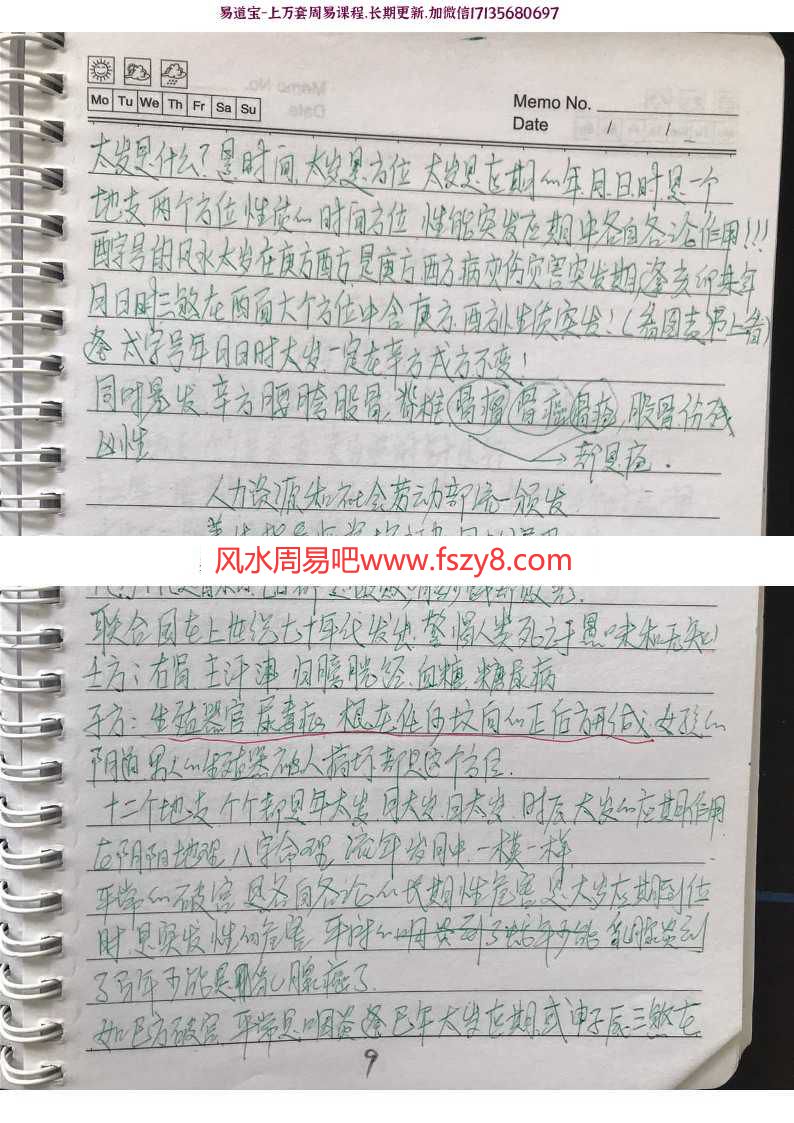 易道宝-上万套周易课程.长期更新.加微信17135680697
Memo No.
Mo Tu We Th Fr Sa Su
Date / /
太岁是什么？是时间，太岁是方位 太岁是应期的年月日时是一个
地支两个方位性质的时间方位 性能突发应期中各自各论作用!!!
酉字号的风水太岁在庚方酉方，是庚方酉方病灾伤灾害突发期，逢亥卯未年
月日时三煞在西面大个方位中含庚方.酉方性质突发！(看图
逢 字号年月日时太岁一定在辛方戌方不变！
同时暴发.辛方腰胯股骨.脊椎 骨瘤 骨癌 骨癌,股骨伤残
凶性 都是癌.
人力资源和社会劳动部统一颁发
风水周易吧www.fszy8.com
联合国在上世纪七十年代发出,警惕人类死于愚昧和无知
壬方：右肾 主汗津 归膀胱经.血糖.糖尿病
子方：生殖器官尿毒症 想在任何坟向的正后方开门 女孩的
阴道男人的生殖器被人搞坏都是这个方位.
十二个地支个个都是年太岁.月太岁.日太岁 时辰太岁的应期作用
在阴阳地理.八字命理.流年岁月中.一模一样.
平常的破害是各自各论的长期性危害 是太岁应期到位
时.是突发性的危害 平时的 乳腺炎到
了 年 能是 乳腺癌了.
如巳方破害 平常是咽炎 逢巳年太岁应期.或申子辰三煞在
9